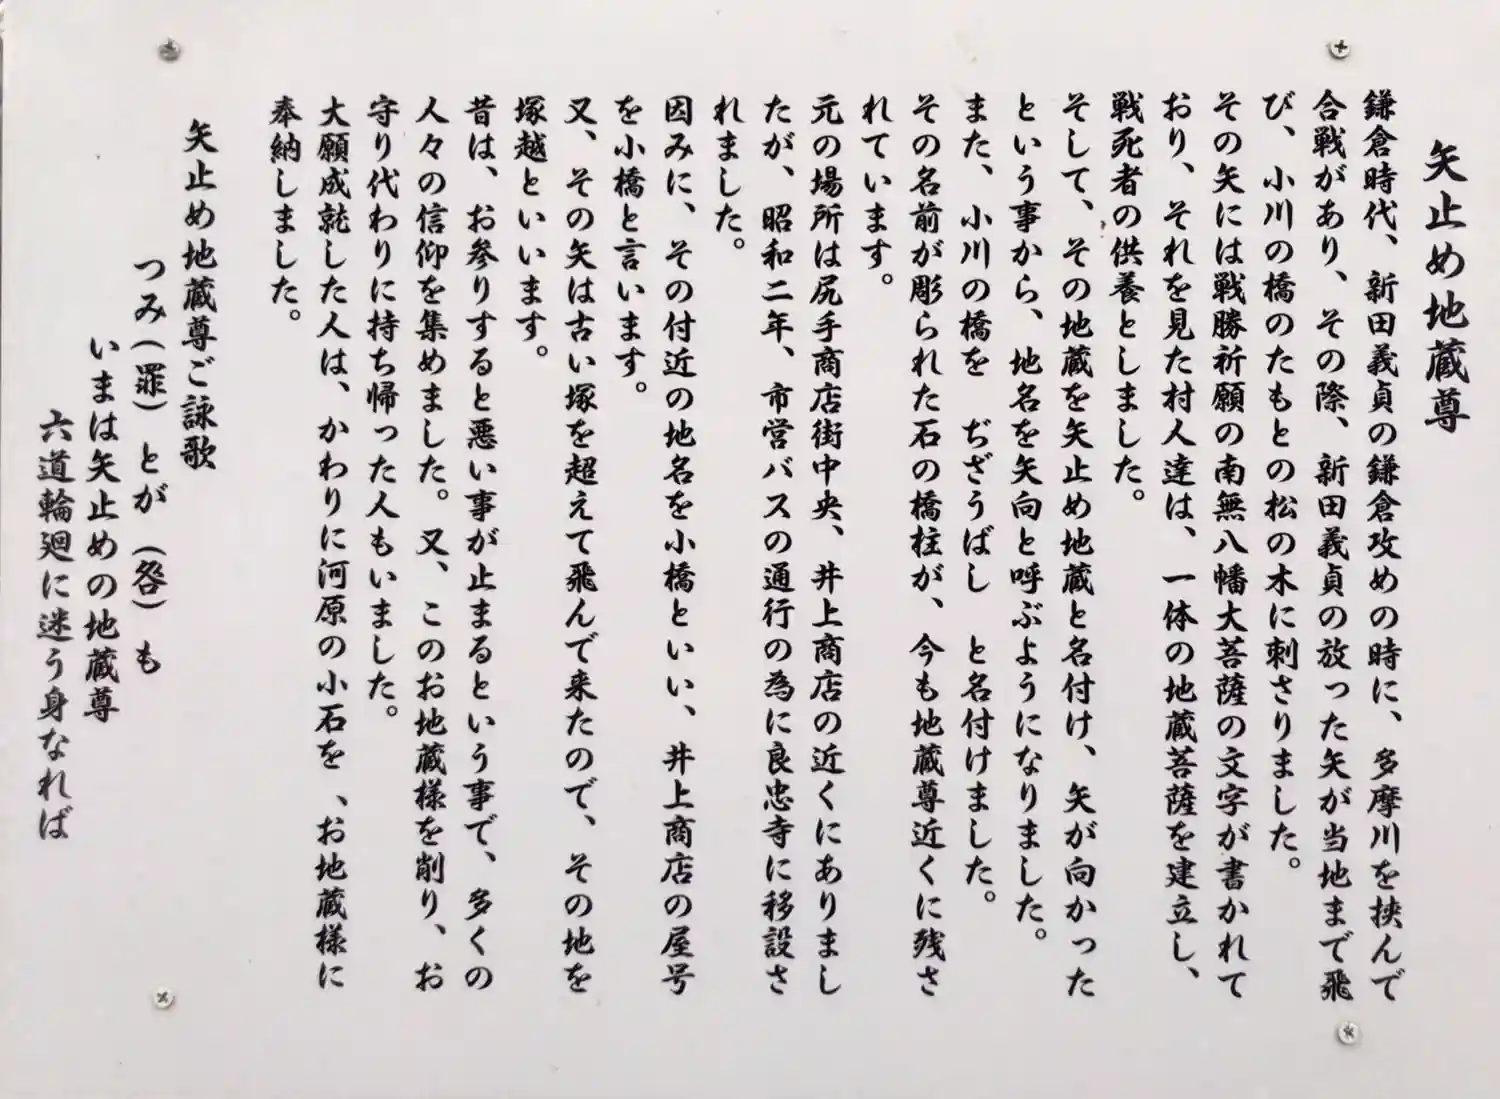 矢止め地蔵尊
鎌倉時代、新田義貞の鎌倉攻めの時に、多摩川を挟んで
合戦があり、その際、新田義貞の放った矢が当地まで飛
び、小川の橋のたもとの松の木に刺さりました。
その矢には戦勝祈願の南無八幡大菩薩の文字が書かれて
おり、それを見た村人達は、一体の地蔵菩薩を建立し、
戦死者の供養としました。
そして、その地蔵を矢止め地蔵と名付け、矢が向かった
という事から、地名を矢向と呼ぶようになりました。
また、小川の橋を ぢざうばし と名付けました。
その名前が彫られた石の橋柱が、今も地蔵尊近くに残さ
れています。
元の場所は尻手商店街中央、井上商店の近くにありまし
たが、昭和二年、市営バスの通行の為に良忠寺に移設さ
れました。
因みに、その付近の地名を小橋といい、井上商店の屋号
を小橋と言います。
又、その矢は古い塚を超えて飛んで来たので、その地を
塚越といいます。
昔は、お参りすると悪い事が止まるという事で、多くの
人々の信仰を集めました。又、このお地蔵様を削り、お
守り代わりに持ち帰った人もいました。
大願成就した人は、かわりに河原の小石を、お地蔵様に
奉納しました。
矢止め地蔵尊ご詠歌
つみ(罪)とが(咎)も
いまは矢止めの地蔵尊
六道輪廻に迷う身なれば